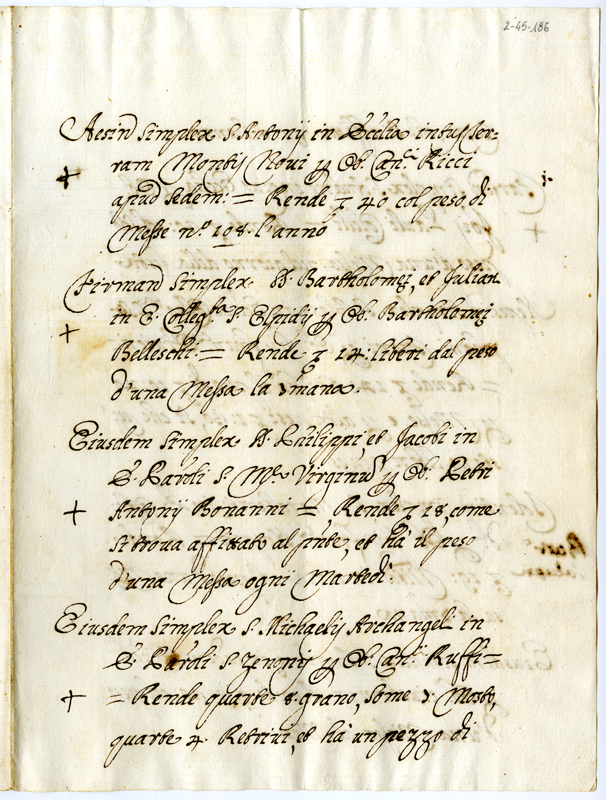 2-45-186
Aesin simplex S. Antonij in Ecclia intus Ter-
ram Montis Novi p Ob. Can.ci Ricci
apud sedem: = Rende z 40 col peso di
Messe n.o 108. l'anno
Firman simplex SS. Bartholomei, et Julian
in E. Colleg.ta S. Elpidij p Ob. Bartholomei
Belleschi = Rende z 14: liberi dal peso
d'una Messa la 7mana.
Eiusdem simplex SS. Philippi, et Jacobi in
E. Par͠oli S. M.ae Virginu p Ob. Petri
Antonij Bonanni = Rende z 18, come
si trova affittato al pnte, et ha il peso
d'una Messa ogni Martedi.
Eiusdem simplex S. Michaelis Archangeli in
E. Par͠oli S. Zenonis p Ob. Can.ci Ruffi=
= Rende quarte 8. grano, some 7 Mosto,
quarte 4. et ha un pezzo di